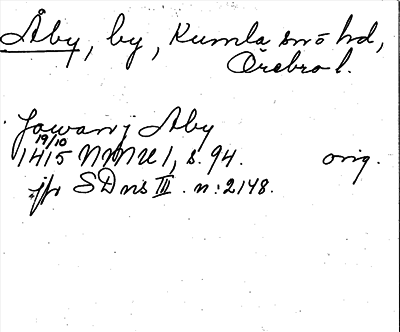 Åby, by, Kumla snō hd,
Örebro l.
Jowan j Aby
19/10
1415 NMU 1, s. 94. orig.
jfr SD ns III. n:2148.